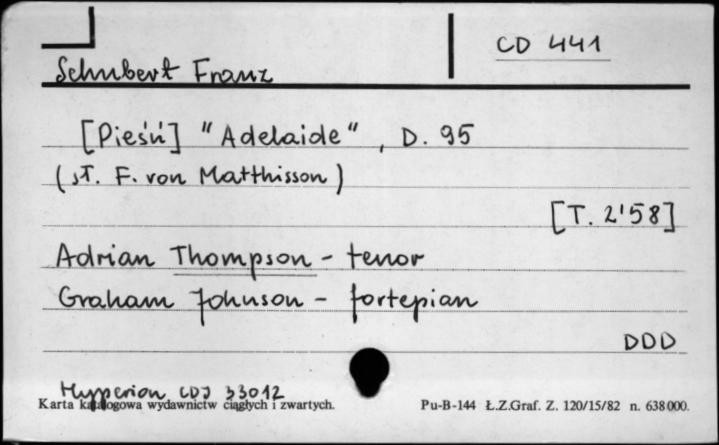 CD 441
Schubert Franz
[Pieśń] "Adelaide", D. 95
(sł. F. von Matthisson)
[T. 2'58]
Adrian Thompson - tenor
Graham Johnson - fortepian
DDD
Hyperion CDJ 33012
Karta katalogowa wydawnictw ciągłych i zwartych.
Pu-B-144 Ł.Z.Graf. Z. 120/15/82 n. 638000.